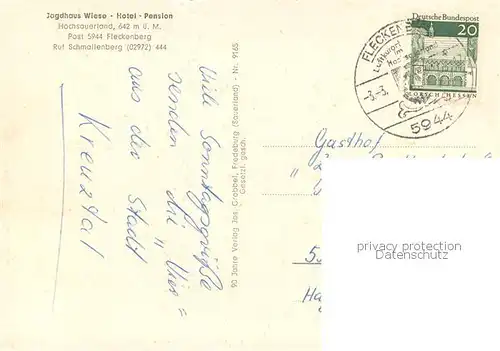 Jagdhaus Wiese - Hotel - Pension
Hochsauerland, 642 m ü. M.
Post 5944 Fleckenberg
Ruf Schmallenberg (02972) 444
Deutsche Bundespost
20
LORSCH/HESSEN
FLECKENBE
Luftkurort
im
-3.-3.
5944
90 Jahre Verlag Jos. Grobbel, Fredeburg (Sauerland) - Nr. 9165
Gesetzl. gesch.
Viele Sonntagsgrüße
senden die „Vier"
aus der Stadt
Kreuztal
Gasthof
5
Ha
privacy protection
Datenschutz